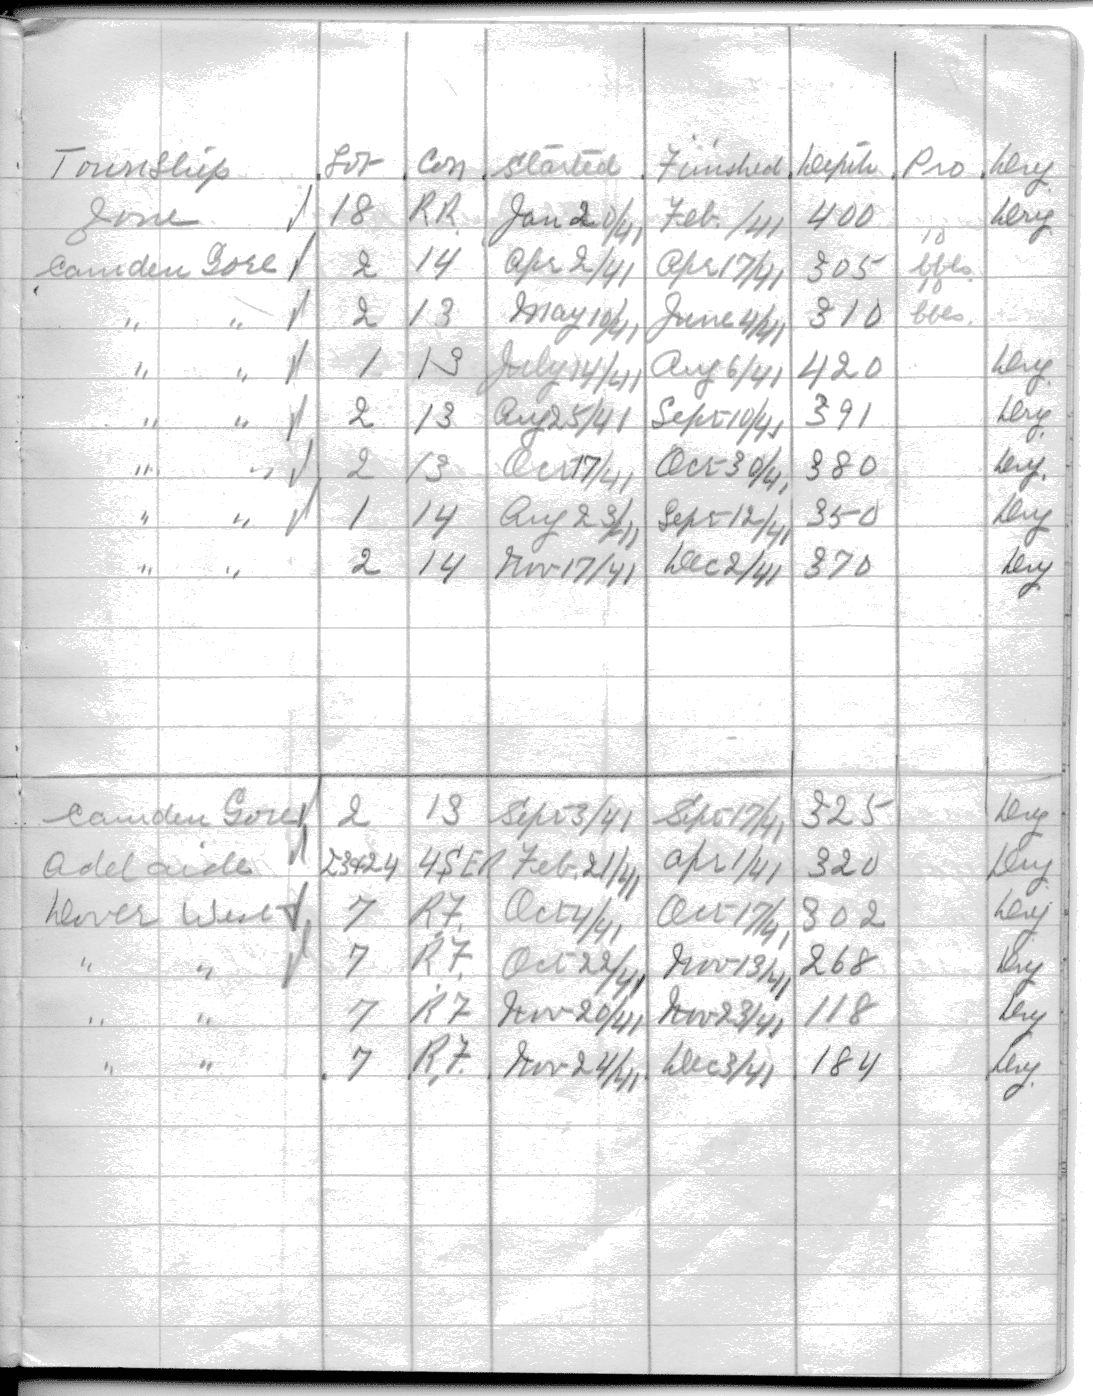 Township Lot Con Started Finished Depth Pro Dry
Zone √ 18 R.R. Jan 20/41 Feb. /41 400 Dry
Camden Gore √ 2 14 Apr 2/41 Apr 17/41 305 10 bbls.
" " √ 2 13 May 10/41 June 4/41 310 10 bbls.
" " √ 1 13 July 14/41 Aug 6/41 420 Dry.
" " √ 2 13 Aug 25/41 Sept 10/41 391 Dry.
" " √ 2 13 Oct 17/41 Oct 30/41 380 Dry.
" " √ 1 14 Aug 23/41 Sept 12/41 350 Dry
" " 2 14 Nov 17/41 Dec 2/41 370 Dry
Camden Gore √ 2 13 Sept 3/41 Sept 17/41 325 Dry
Adelaide √ 23+24 4 S E R Feb. 21/41 Apr 1/41 320 Dry
Dover West √ 7 R.F. Oct 4/41 Oct 17/41 302 Dry
" " √ 7 R.F. Oct 22/41 Nov 13/41 268 Dry
" " 7 R.F. Nov 20/41 Nov 23/41 118 Dry
" " 7 R.F. Nov 24/41 Dec 3/41 184 Dry.